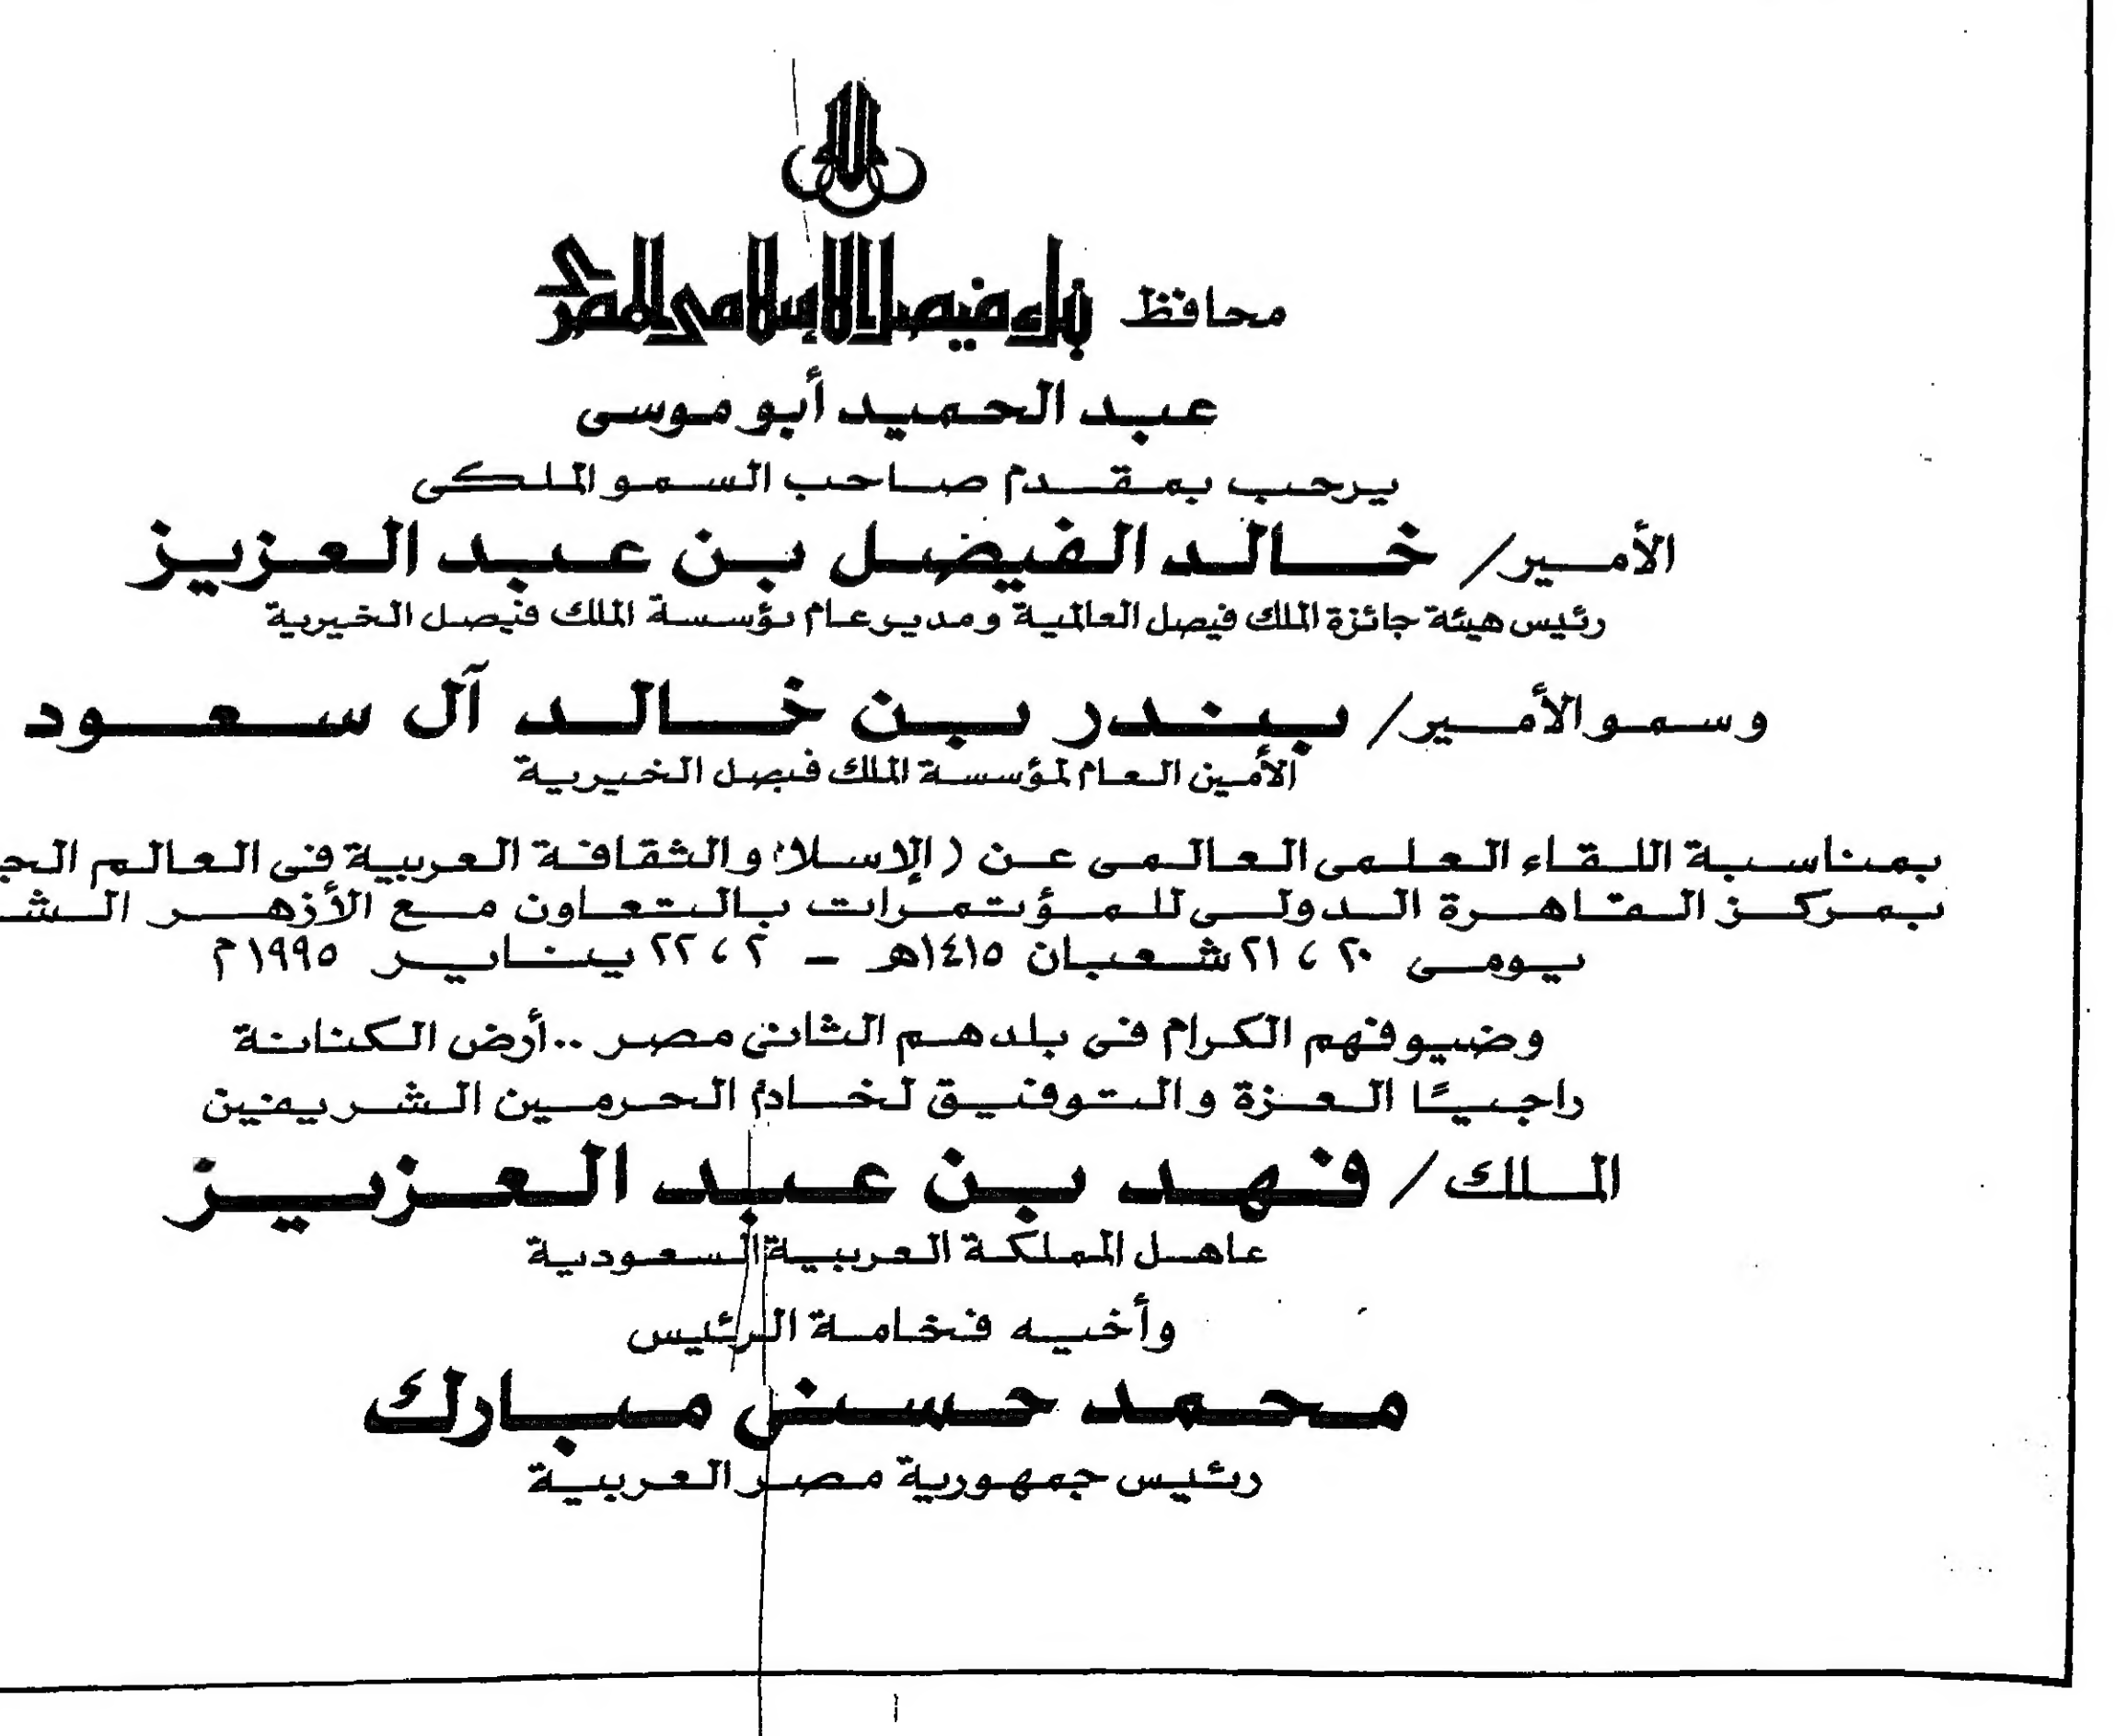 محافظ بنك فيصل الإسلامي المصري
عبد الحميد أبو موسى
يرحب بمقدم صاحب السمو الملكى
الأمير/ خالد الفيصل بن عبد العزيز
رئيس هيئة جائزة الملك فيصل العالمية ومدير عام مؤسسة الملك فيصل الخيرية
وسمو الأمير/ بندر بن خالد آل سعود
الأمين العام لمؤسسة الملك فيصل الخيرية
بمناسبة اللقاء العلمى العالمى عن (الإسلام والثقافة العربية فى العالم الجـ
بمركز القاهرة الدولى للمؤتمرات بالتعاون مع الأزهر الشـ
يومى ٢٠ ، ٢١ شعبان ١٤١٥هـ - ٢ ، ٢٢ يناير ١٩٩٥م
وضيوفهم الكرام فى بلدهم الثانى مصر ..أرض الكنانة
راجيًا العزة والتوفيق لخادم الحرمين الشريفين
الملك/ فهد بن عبد العزيز
عاهل المملكة العربية السعودية
وأخيه فخامة الرئيس
محمد حسنى مبارك
رئيس جمهورية مصر العربية